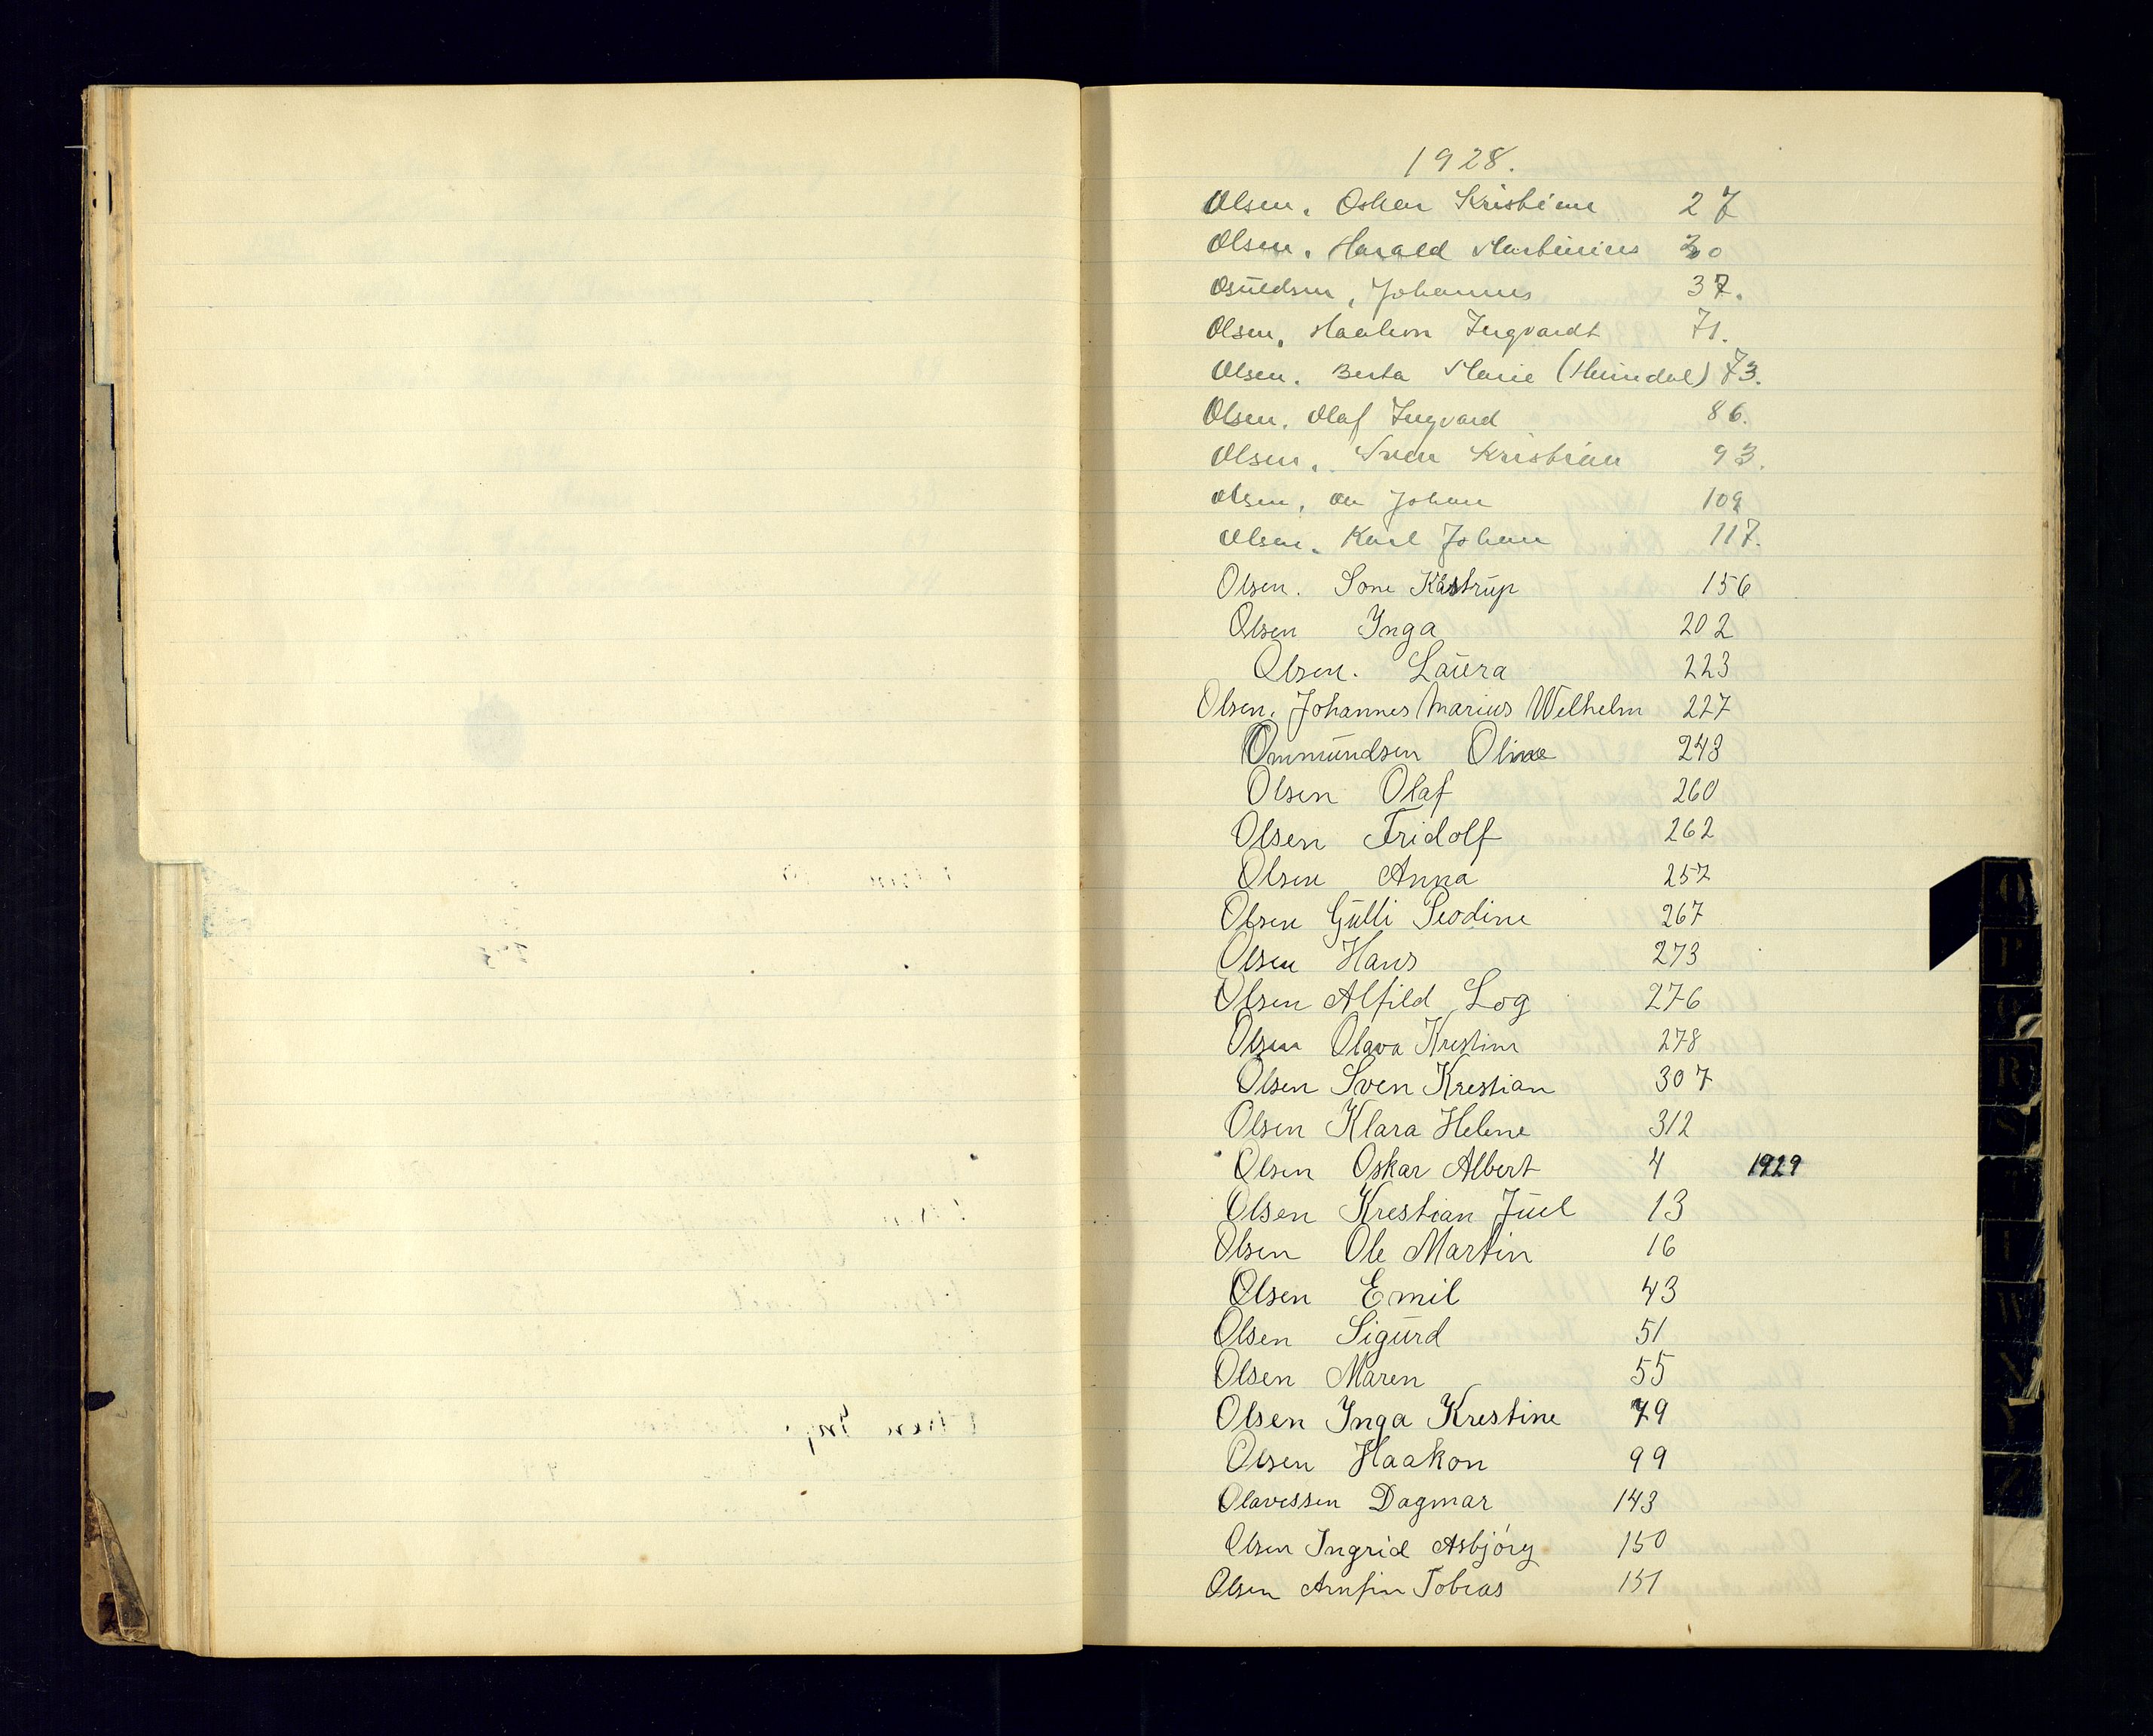 1928.
Olsen, Oskar Kristian 27
Olsen, Harald Martinius 30
Osuldsen, Johannes 37.
Olsen, Haakon Ingvardt 71.
Olsen, Berta Marie (Heimdal) 73.
Olsen, Olaf Ingvard 86.
Olsen, Sven Kristian 93.
Olsen, Ole Johan 109
Olsen, Karl Johan 117.
Olsen. Sone Kastrup 156
Olsen Inga 202
Olsen. Laura 223
Olsen. Johannes Marius Wilhelm 227
Ommundsen Oline 243
Olsen Olaf 260
Olsen Fridolf 262
Olsen Anna 257
Olsen Gulli Peodine 267
Olsen Hans 273
Olsen Alfild Log 276
Olsen Olava Kristine 278
Olsen Sven Krestian 307
Olsen Klara Helene 312
Olsen Oskar Albert 4 1929
Olsen Krestian Juel 13
Olsen Ole Martin 16
Olsen Emil 43
Olsen Sigurd 51
Olsen Maren 55
Olsen Inga Krestine 79
Olsen Haakon 99
Olavessen Dagmar 143
Olsen Ingrid Asbjórg 150
Olsen Arnfin Tobias 151